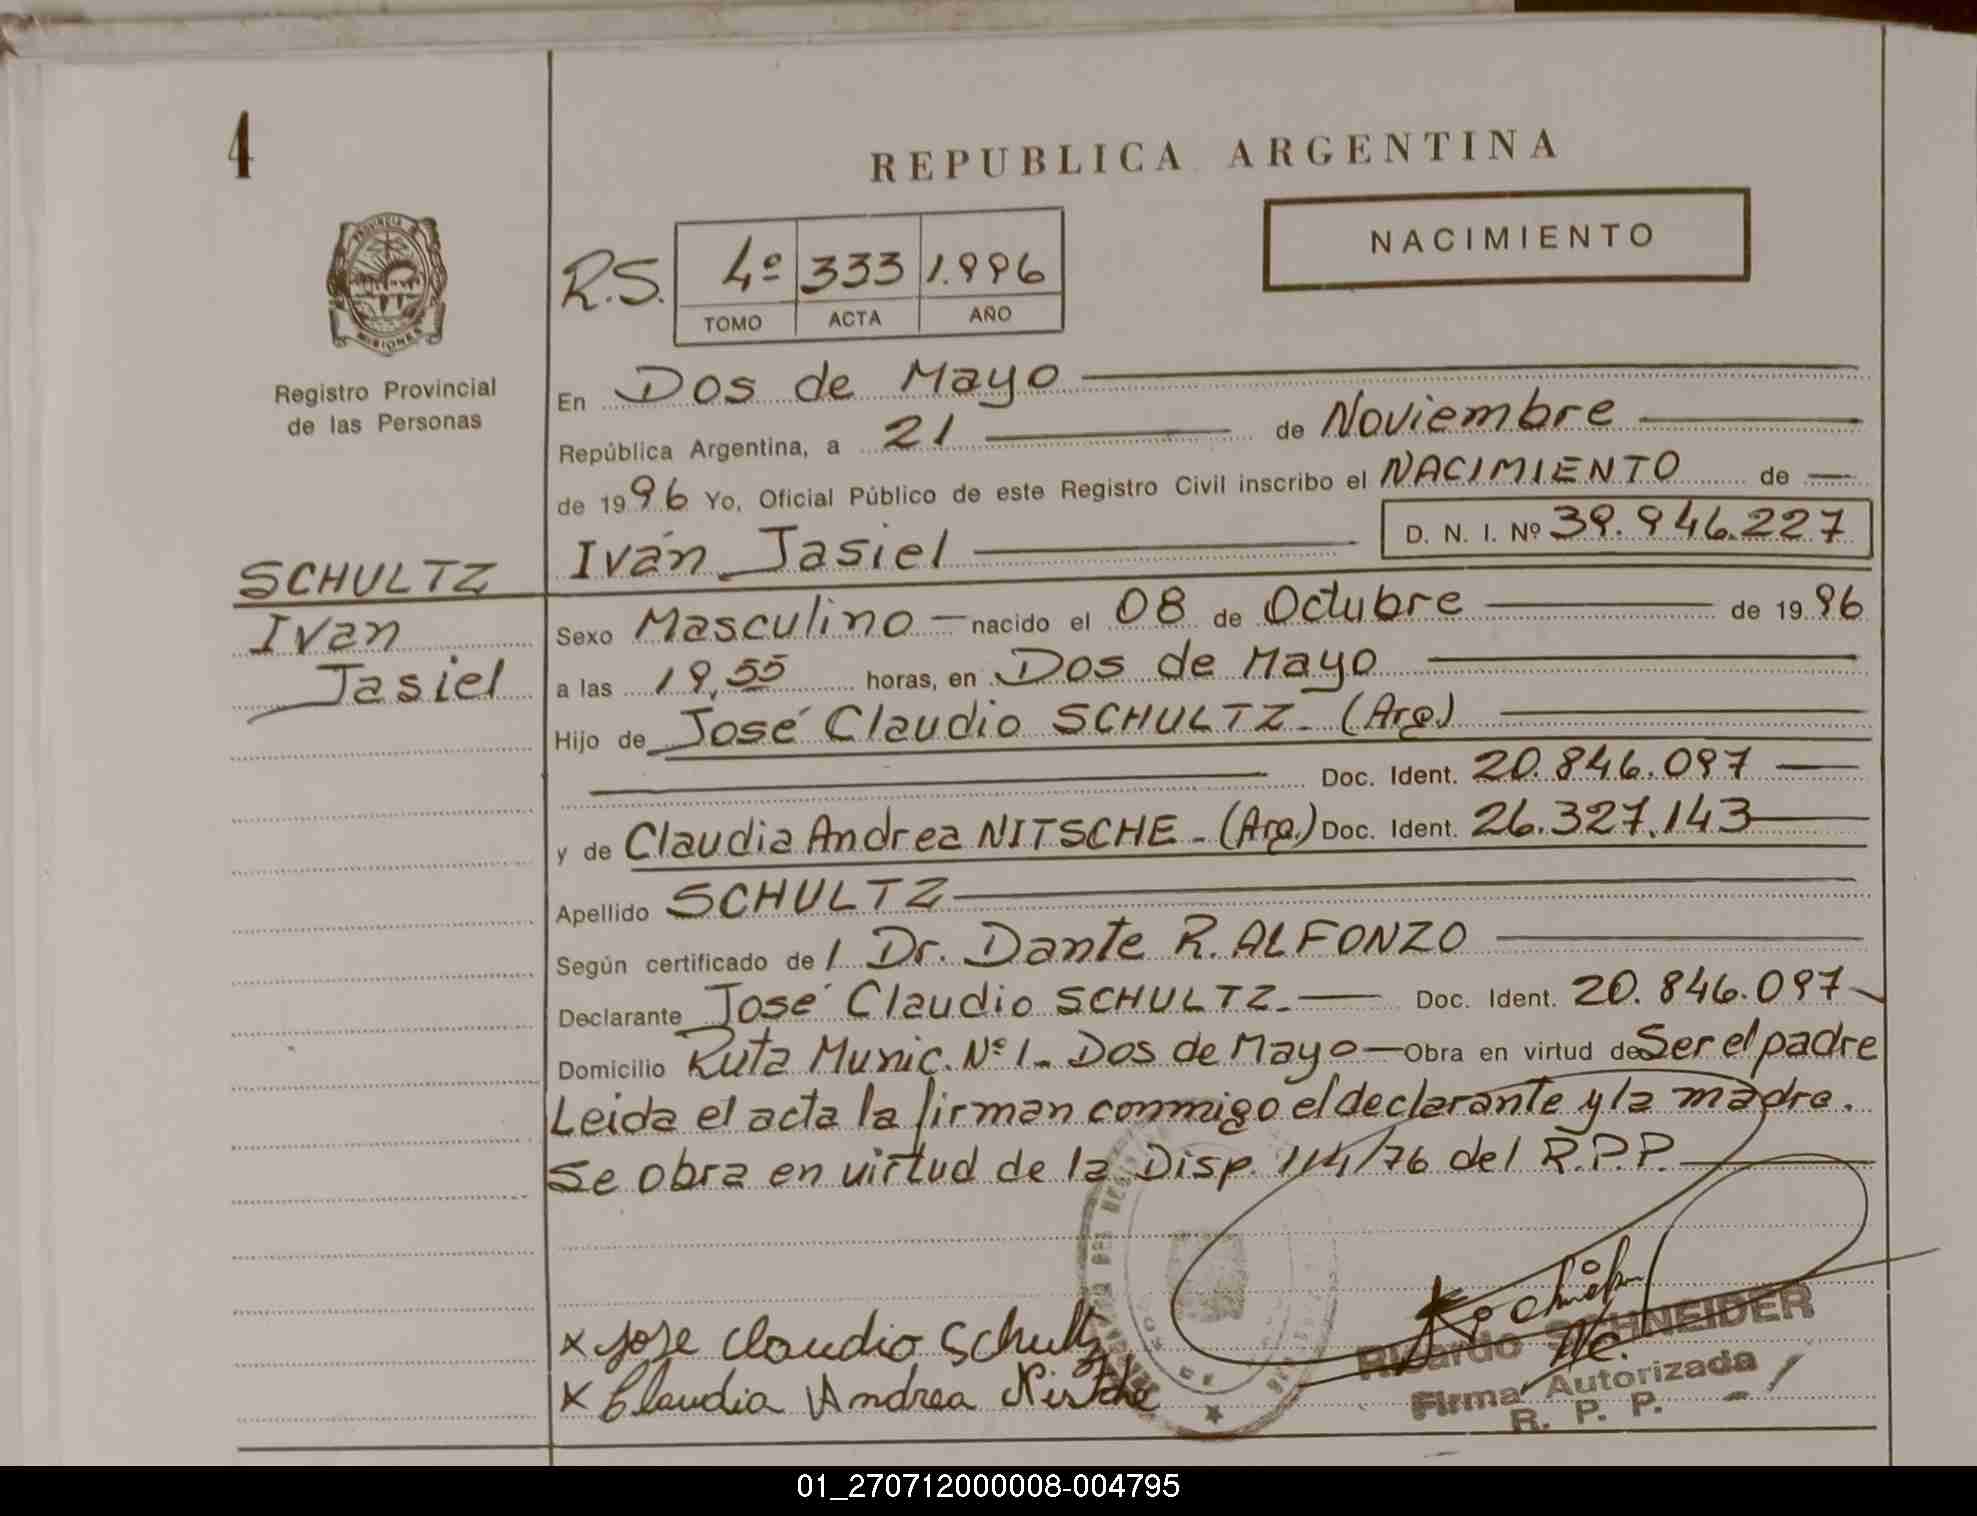 4
REPUBLICA ARGENTINA
NACIMIENTO
PROVINCIA
MISIONES
R.S. 4º 333 1.996
TOMO ACTA AÑO
Registro Provincial
de las Personas
En Dos de Mayo
República Argentina, a 21 de Noviembre
de 1996 Yo, Oficial Público de este Registro Civil inscribo el NACIMIENTO de
Iván Jasiel D. N. I. Nº 39.946.227
SCHULTZ
Ivan
Jasiel
Sexo Masculino nacido el 08 de Octubre de 1996
a las 19,55 horas, en Dos de Mayo
Hijo de José Claudio SCHULTZ (Arg)
Doc. Ident. 20.846.097
y de Claudia Andrea NITSCHE - (Arg.) Doc. Ident. 26.327.143
Apellido SCHULTZ
Según certificado del Dr. Dante R. ALFONZO
Declarante José Claudio SCHULTZ. Doc. Ident. 20.846.097
Domicilio Ruta Munic. Nº 1 - Dos de Mayo Obra en virtud de Ser el padre
Leida el acta la firman conmigo el declarante y la madre.
Se obra en virtud de la Disp. 114/76 del R.P.P.
x Jose Claudio Schultz
x Claudia Andrea Nistche
Ricardo SCHNEIDER
Firma Autorizada
R. P. P.
01_270712000008-004795